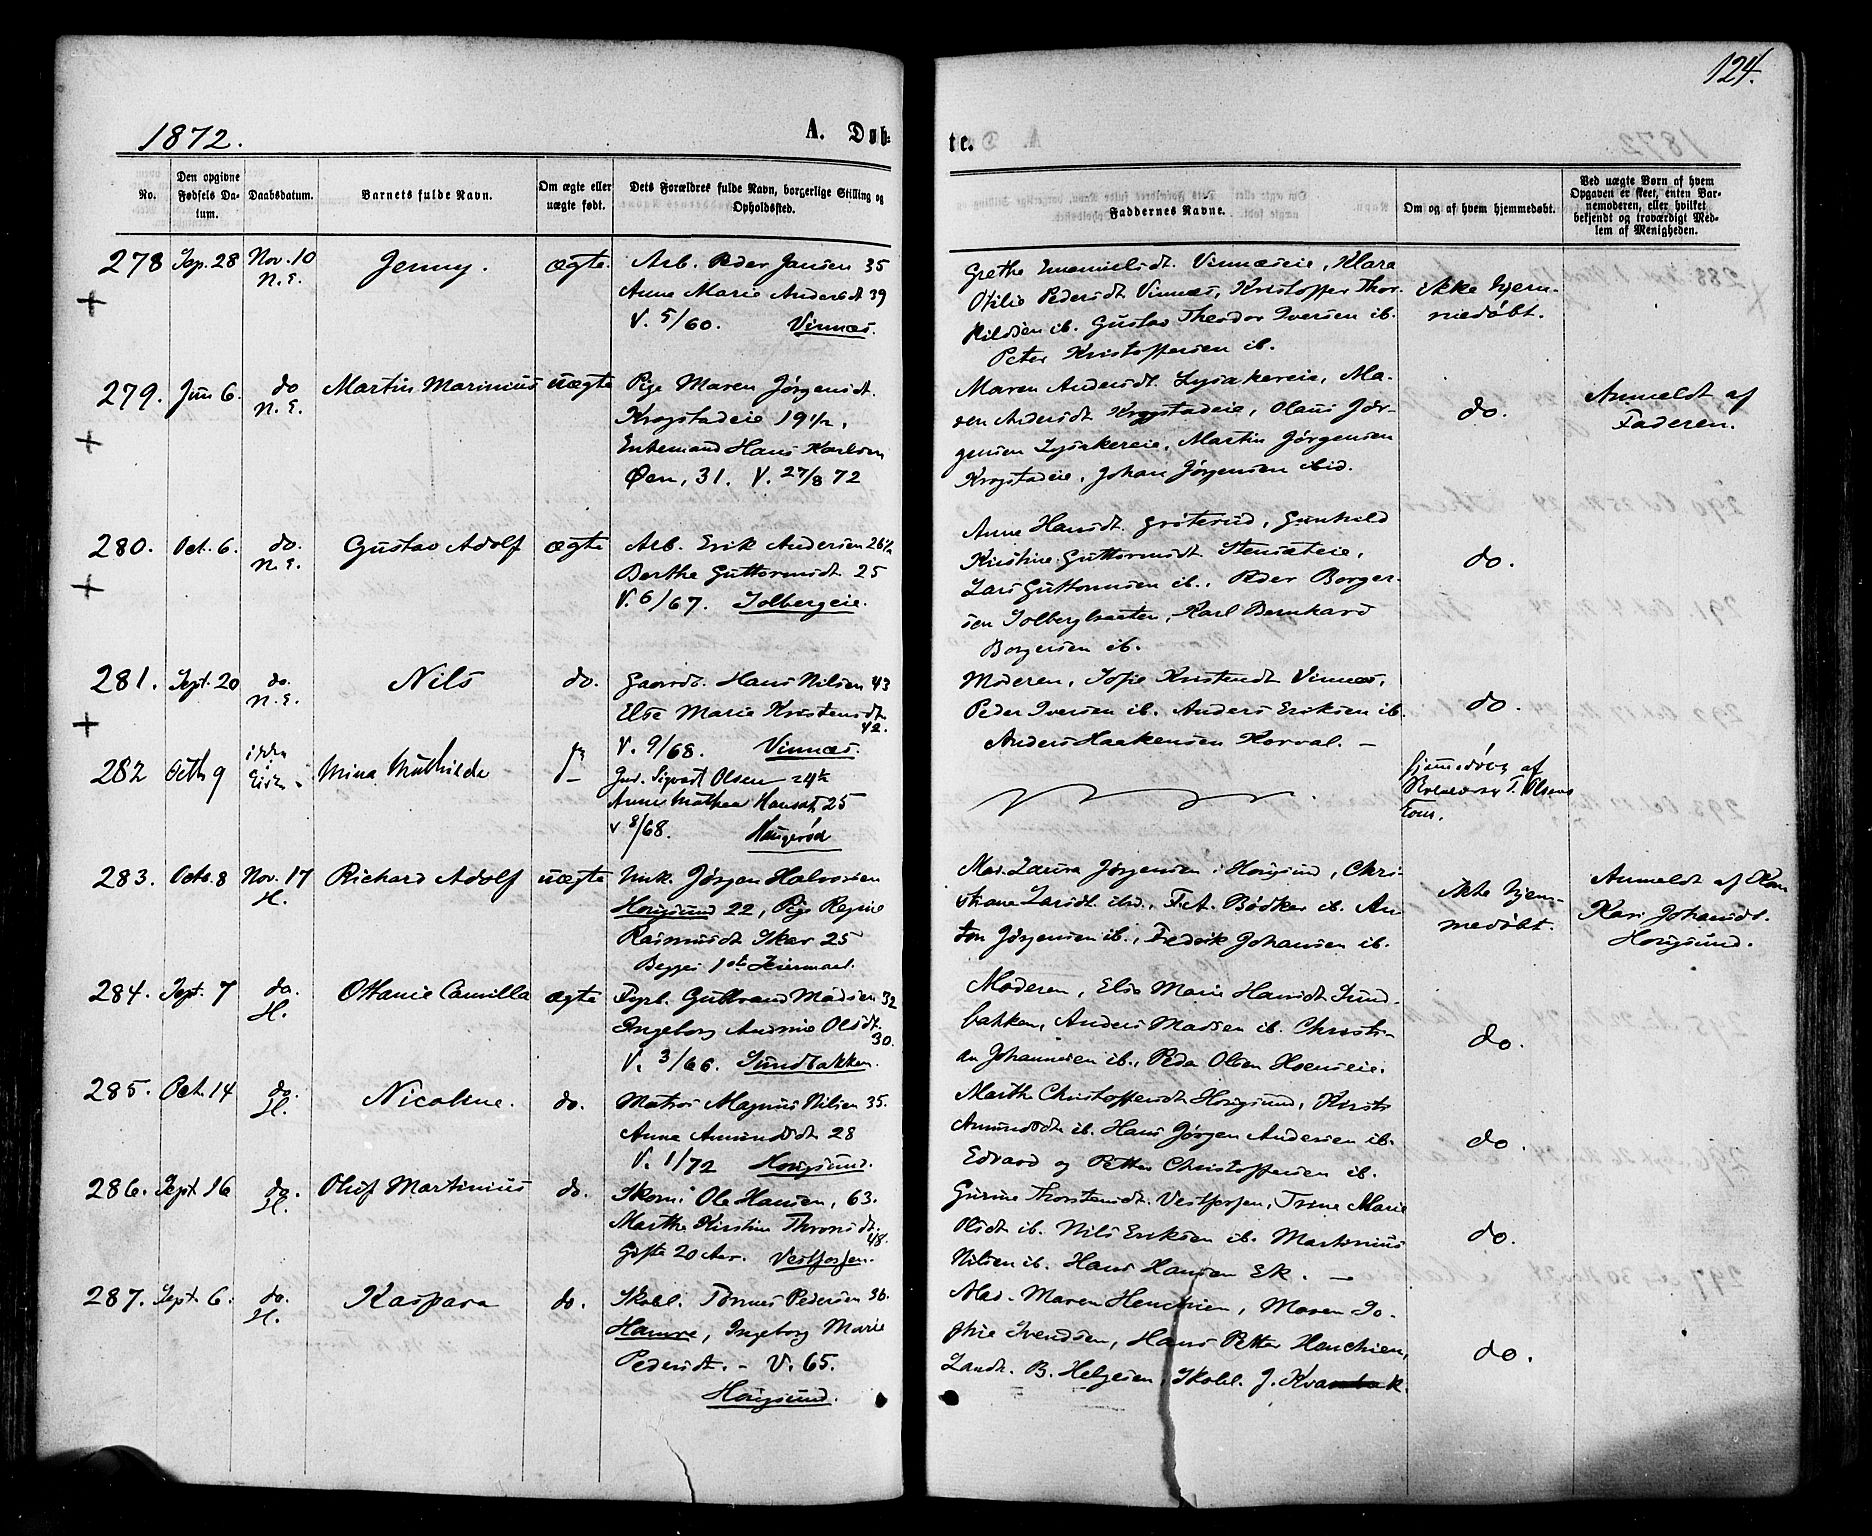 124.
1872.
A. Døb-
te.
No.
Den opgivne Fødsels Datum.
Daabsdatum.
Barnets fulde Navn.
Om ægte eller uægte født.
Dets Forældres fulde Navn, borgerlige Stilling og Opholdssted.
Faddernes Navne.
Om og af hvem hjemmedøbt.
Ved uægte Børn af hvem Opgaven er skeet, enten Barnemoderen, eller hvilket bekjendt og troværdigt Medlem af Menigheden.
278 Sep. 28 Nov. 10 N.E. Jenny. ægte.
Arb. Peder Jansen 35
Anne Marie Andersdt 39
V. 5/60. Vinnæs.
Grethe Emanuelsdt. Vinnæseie, Klara
Otilie Pedersdt Vinnæs, Kristoffer Thor-
kildsen ib. Gustav Theodor Iversen ib.
Peter Kristoffersen ib.
ikke hjem-
medøbt.
279. Jun 6. do N.E. Martin Marinius uægte
Pige Maren Jørgensdt.
Krogstadeie 19½,
Enkemand Hans Karlsen
Øen, 31. V. 27/8 72
Maren Andersdt. Lysakereie, Ma-
ren Andersdt Krogstadeie, Olaus Jør-
gensen Lysakereie, Martin Jørgensen
Krogstadeie, Johan Jørgensen ibid.
do.
Anmeldt af
Faderen.
280. Oct. 6. do. N.E. Gustav Adolf ægte
Arb. Erik Andersen 26½
Berthe Guttormsdt 25
V. 6/67. Solbergeie.
Anne Hansdt. Grøterud, Gunhild
Kristine Guttormsdt. Stensæteie,
Lars Guttormsen ib., Peder Borger-
sen Solbergbraaten, Karl Bernhard
Borgersen ib.
do.
281. Sept. 20 do. N.E. Nils do.
Gaardb. Hans Nilsen 43
Else Marie Kristensdt
42.
V. 9/68. Vinnæs.
Moderen, Sofie Kristensdt Vinnæs,
Peder Iversen ib. Anders Eriksen ib.
Anders Haakensen Korval. —
do.
282 Octb 9 Mina Mathilde
Sigvart Olsen 24½
Anne Mathea Hansdt, 25
v 8/68. Haugerød
hjemmedøbt af
T. Olsens
283. Octb. 8 Nov. 17 H. Richard Adolf uægte
Unk. Jørgen Halvorsen
Hougsund 22, Pige Regine
Rasmusdt Skar 25
Begges 1ste Leiermaal.
Mad. Laura Jørgensen i Hougsund, Chri-
stiane Larsdt. ibid., F.A. Bødker ib. An-
ton Jørgensen ib., Fredrik Johansen ib.
ikke hjem-
medøbt.
Anmeldt af Kone
Kari Johansdt.
Hougsund.
284. Sept. 7 do. H. Othanie Camilla ægte
Fyrb. Gulbrand Madsen 32
Ingeborg Andrine Olsdt.
30.
V. 3/66. Sundbakken.
Moderen, Else Marie Hansdt Sund-
bakken, Anders Madsen ib. Christi-
an Johannesen ib., Peder Olsen Hoenseie.
do.
285. Oct. 14 do. H. Nicoline. do.
Matros Magnus Nilsen 35.
Anne Amundsdt 28
V. 1/72 Hougsund.
Marthe Christoffersdt Hougsund, Kirsti
Amundsdt ib. Hans Jørgen Andersen ib.
Edvard og Petter Christoffersen ib.
do.
286. Sept 16 do. H. Oluf Martinius do.
Skom. Ole Hansen, 63.
Marthe Kirstine Thronsdt.
48.
Gifte 20 Aar. Vestfossen.
Gurine Thorstensdt. Vestfossen, Trine Marie
Olsdt ib. Nils Eriksen ib. Martinius
Nilsen ib. Hans Hansen Ek. —
do.
287. Sept. 6. do. H. Kaspara do.
Skobl. Tønnes Pedersen 36.
Hamre, Ingeborg Marie
Pedersdt. - V. 65.
Hougsund.
Mad. Maren Henchsien, Maren So-
phie Svendsen, Hans Petter Henchsien,
Landh. B. Helgesen, Skobl. J. Kvambæk.
do.